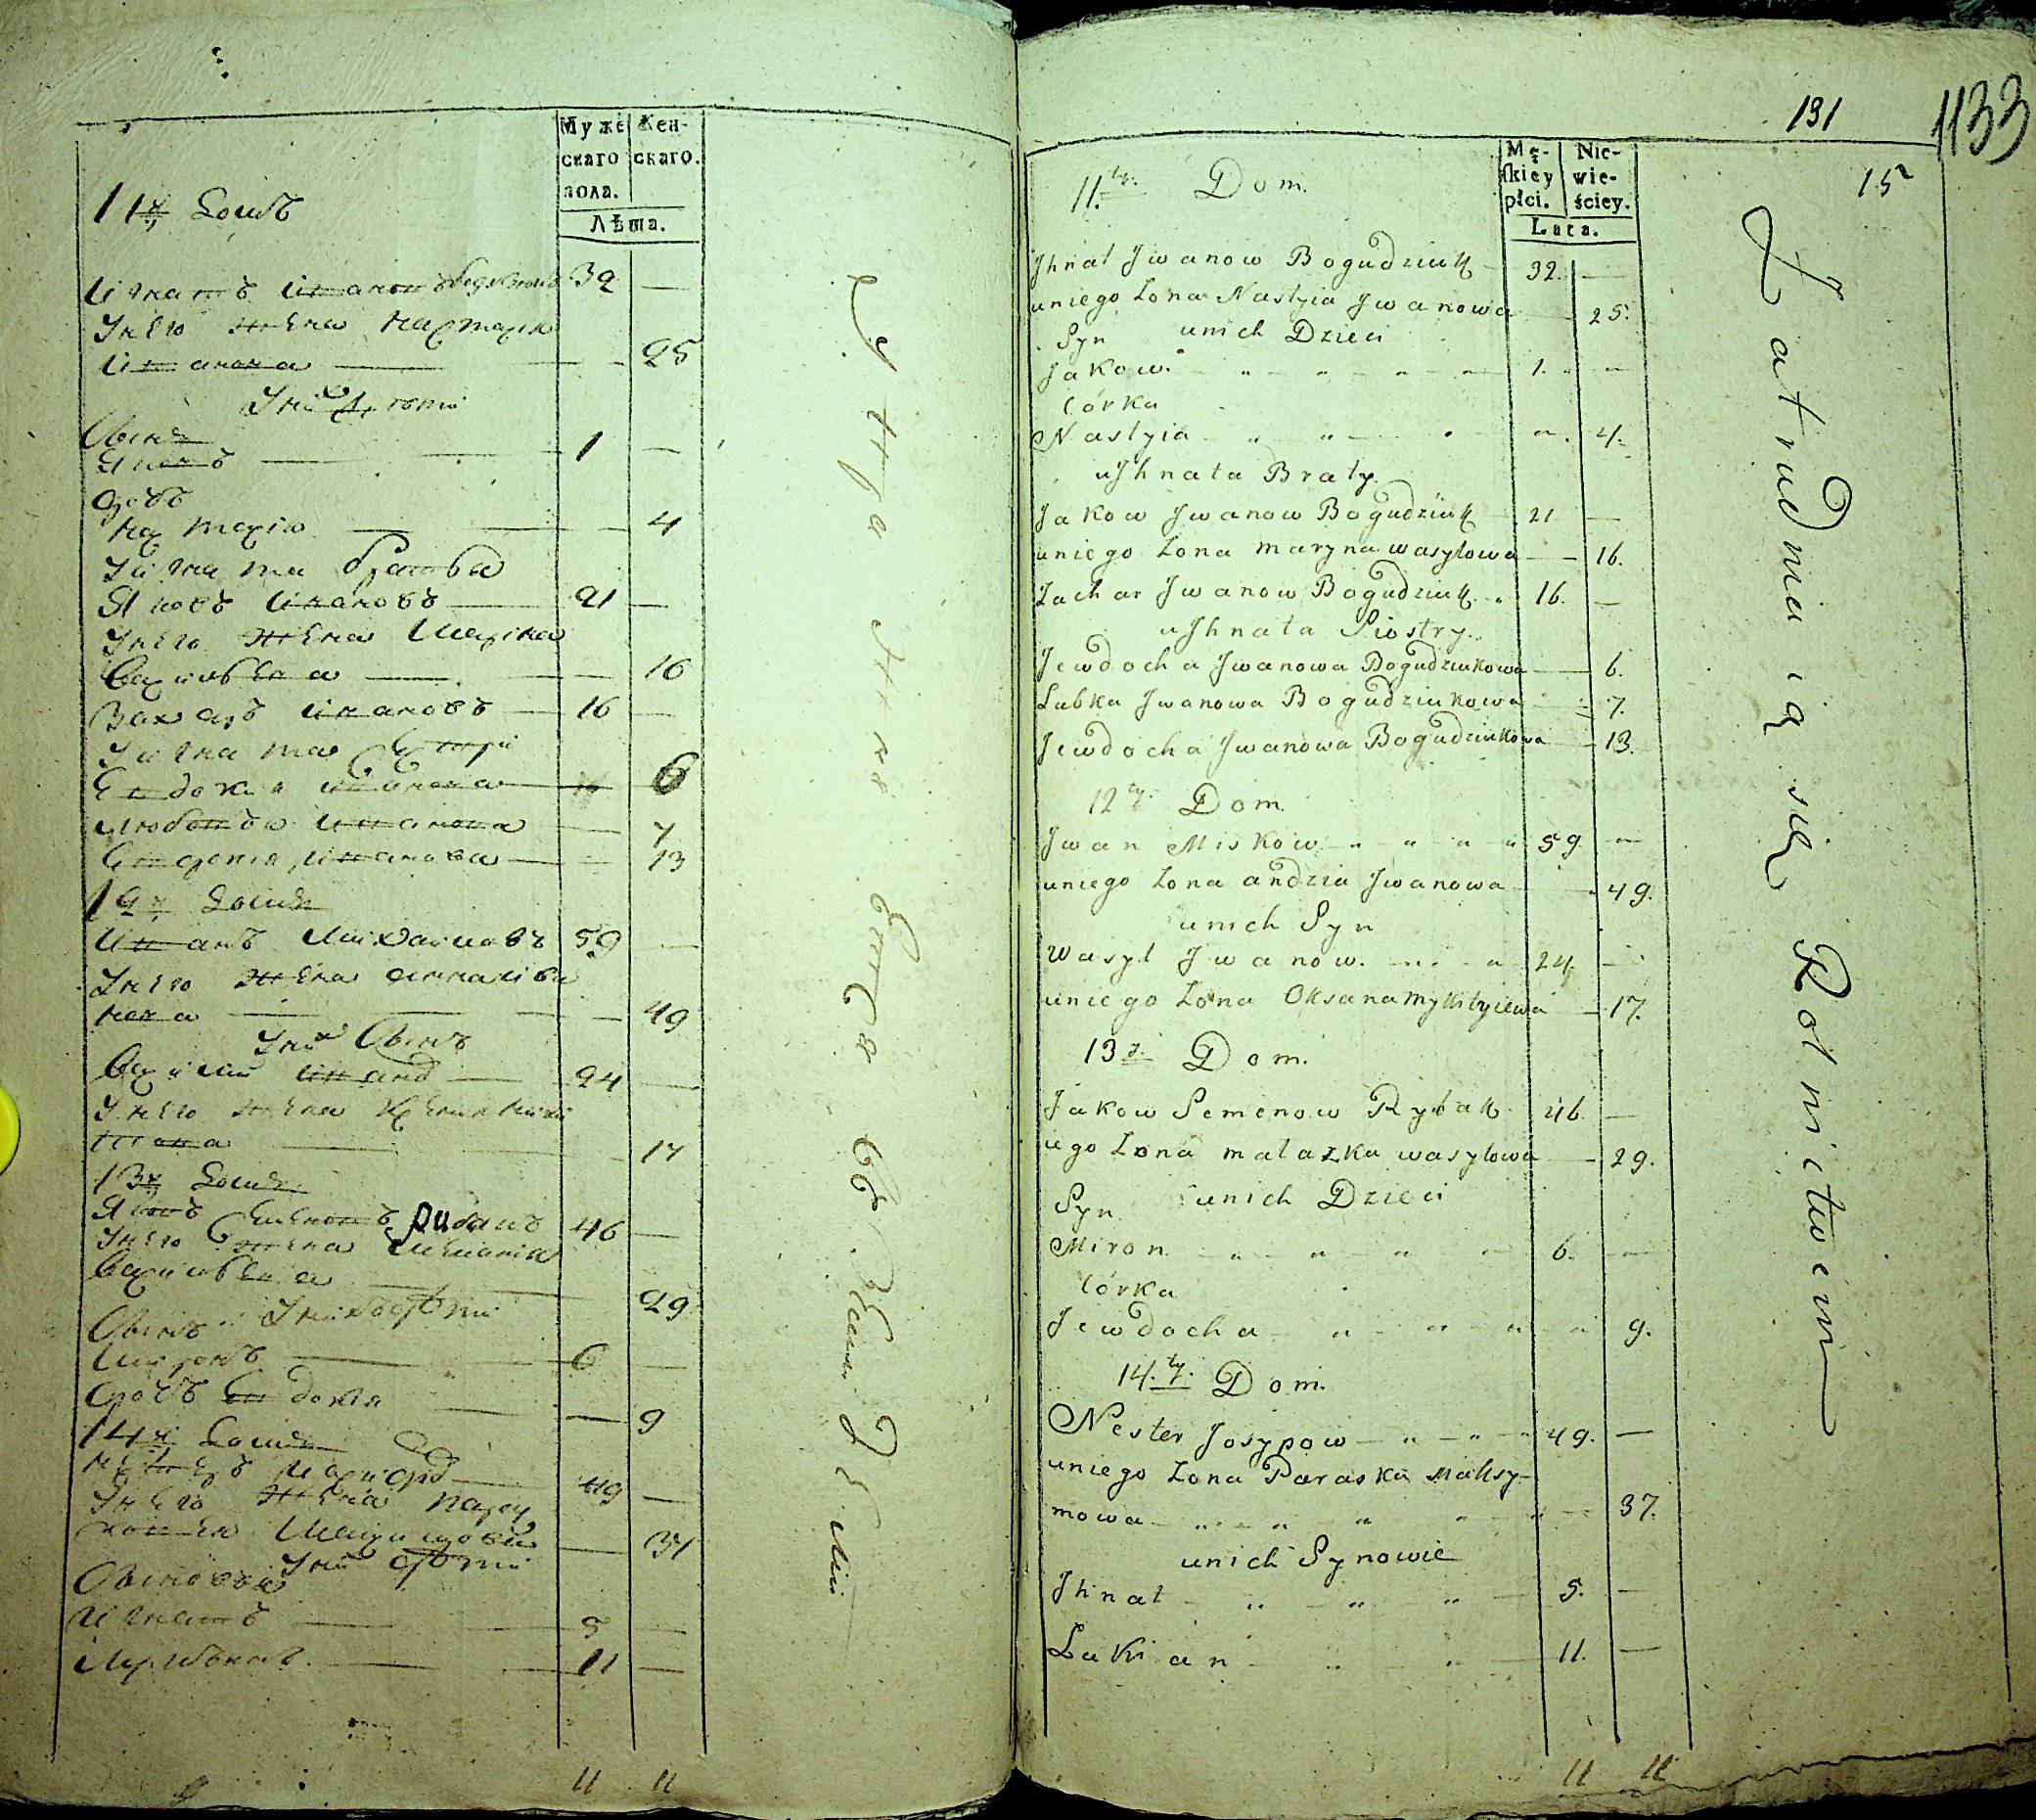 Муже Жен-
скаго скаго.
пола.
Лѣта.
11й Домъ
Игнатъ Ивановъ 32 —
У него жена Настасія
Иванова — 25
У них дѣти
Сынъ
Яковъ — 1 —
дочь
Настасія — 4
У Игната братья
Яковъ Ивановъ — 21 —
У него жена Марина
Васильева — 16
Захаръ Ивановъ — 16 —
У Игната Сестри
Евдокия Иванова — 6
Любовья Иванова — 7
Иванова — 13
12й Домъ
Иванъ Михайловъ 59 —
У него жена Анна Ива
нова — 49
У них Сынъ
Василий Иванов — 24 —
У него жена
— 17
13й Домъ
Яковъ Семеновъ Рибакъ 46 —
У него жена Мелания
Васильева — 29
Сынъ У них дѣти
Миронъ — 6 —
дочь Евдокия — 9
14й Домъ
Нестеръ — 49 —
У него жена Парас
ковея — 37
У них дѣти
Сыновья
Игнатъ — 5 —
— 11 —
11 11
131
1133
15
Mę- Nie-
skiey wie-
płci. ściey.
Lata.
11.ty. Dom.
Jhnat Jwanow Bogudziuk — 32. —
uniego Zona Nastzia Jwanowa — 25.
Syn unich Dzieci
Jakow. — 1. —
Córka
Nastyia — 4.
u Jhnata Braty.
Jakow Jwanow Bogudziuk 21 —
uniego Zona Maryna wasylowa — 16.
Zachar Jwanow Bogudziuk 16. —
u Jhnata Siostry.
Jewdocha Jwanowa Bogudziukowa — 6.
Lubka Jwanowa Bogudziukowa 7.
Jewdocha Jwanowa Bogudziukowa — 13.
12ty. Dom.
Jwan Miskow — 59. —
uniego Zona andzia Jwanowa — 49.
unich Syn
Wasyl Jwanow. — 24. —
uniego Zona Oksana Mykityiewa — 17.
13y. Dom.
Jakow Semenow Rybak 46. —
iego Zona malazka wasylowa — 29.
Syn unich Dzieci
Miron — 6. —
Córka
Jewdocha — 9.
14.ty. Dom.
Nester Josypow — 49. —
uniego Zona Paraska Maksy-
mowa — 37.
unich Synowie
Jhnat — 5. —
Lukian — 11. —
11 11
Zatrudnia ią się Rolnictwem